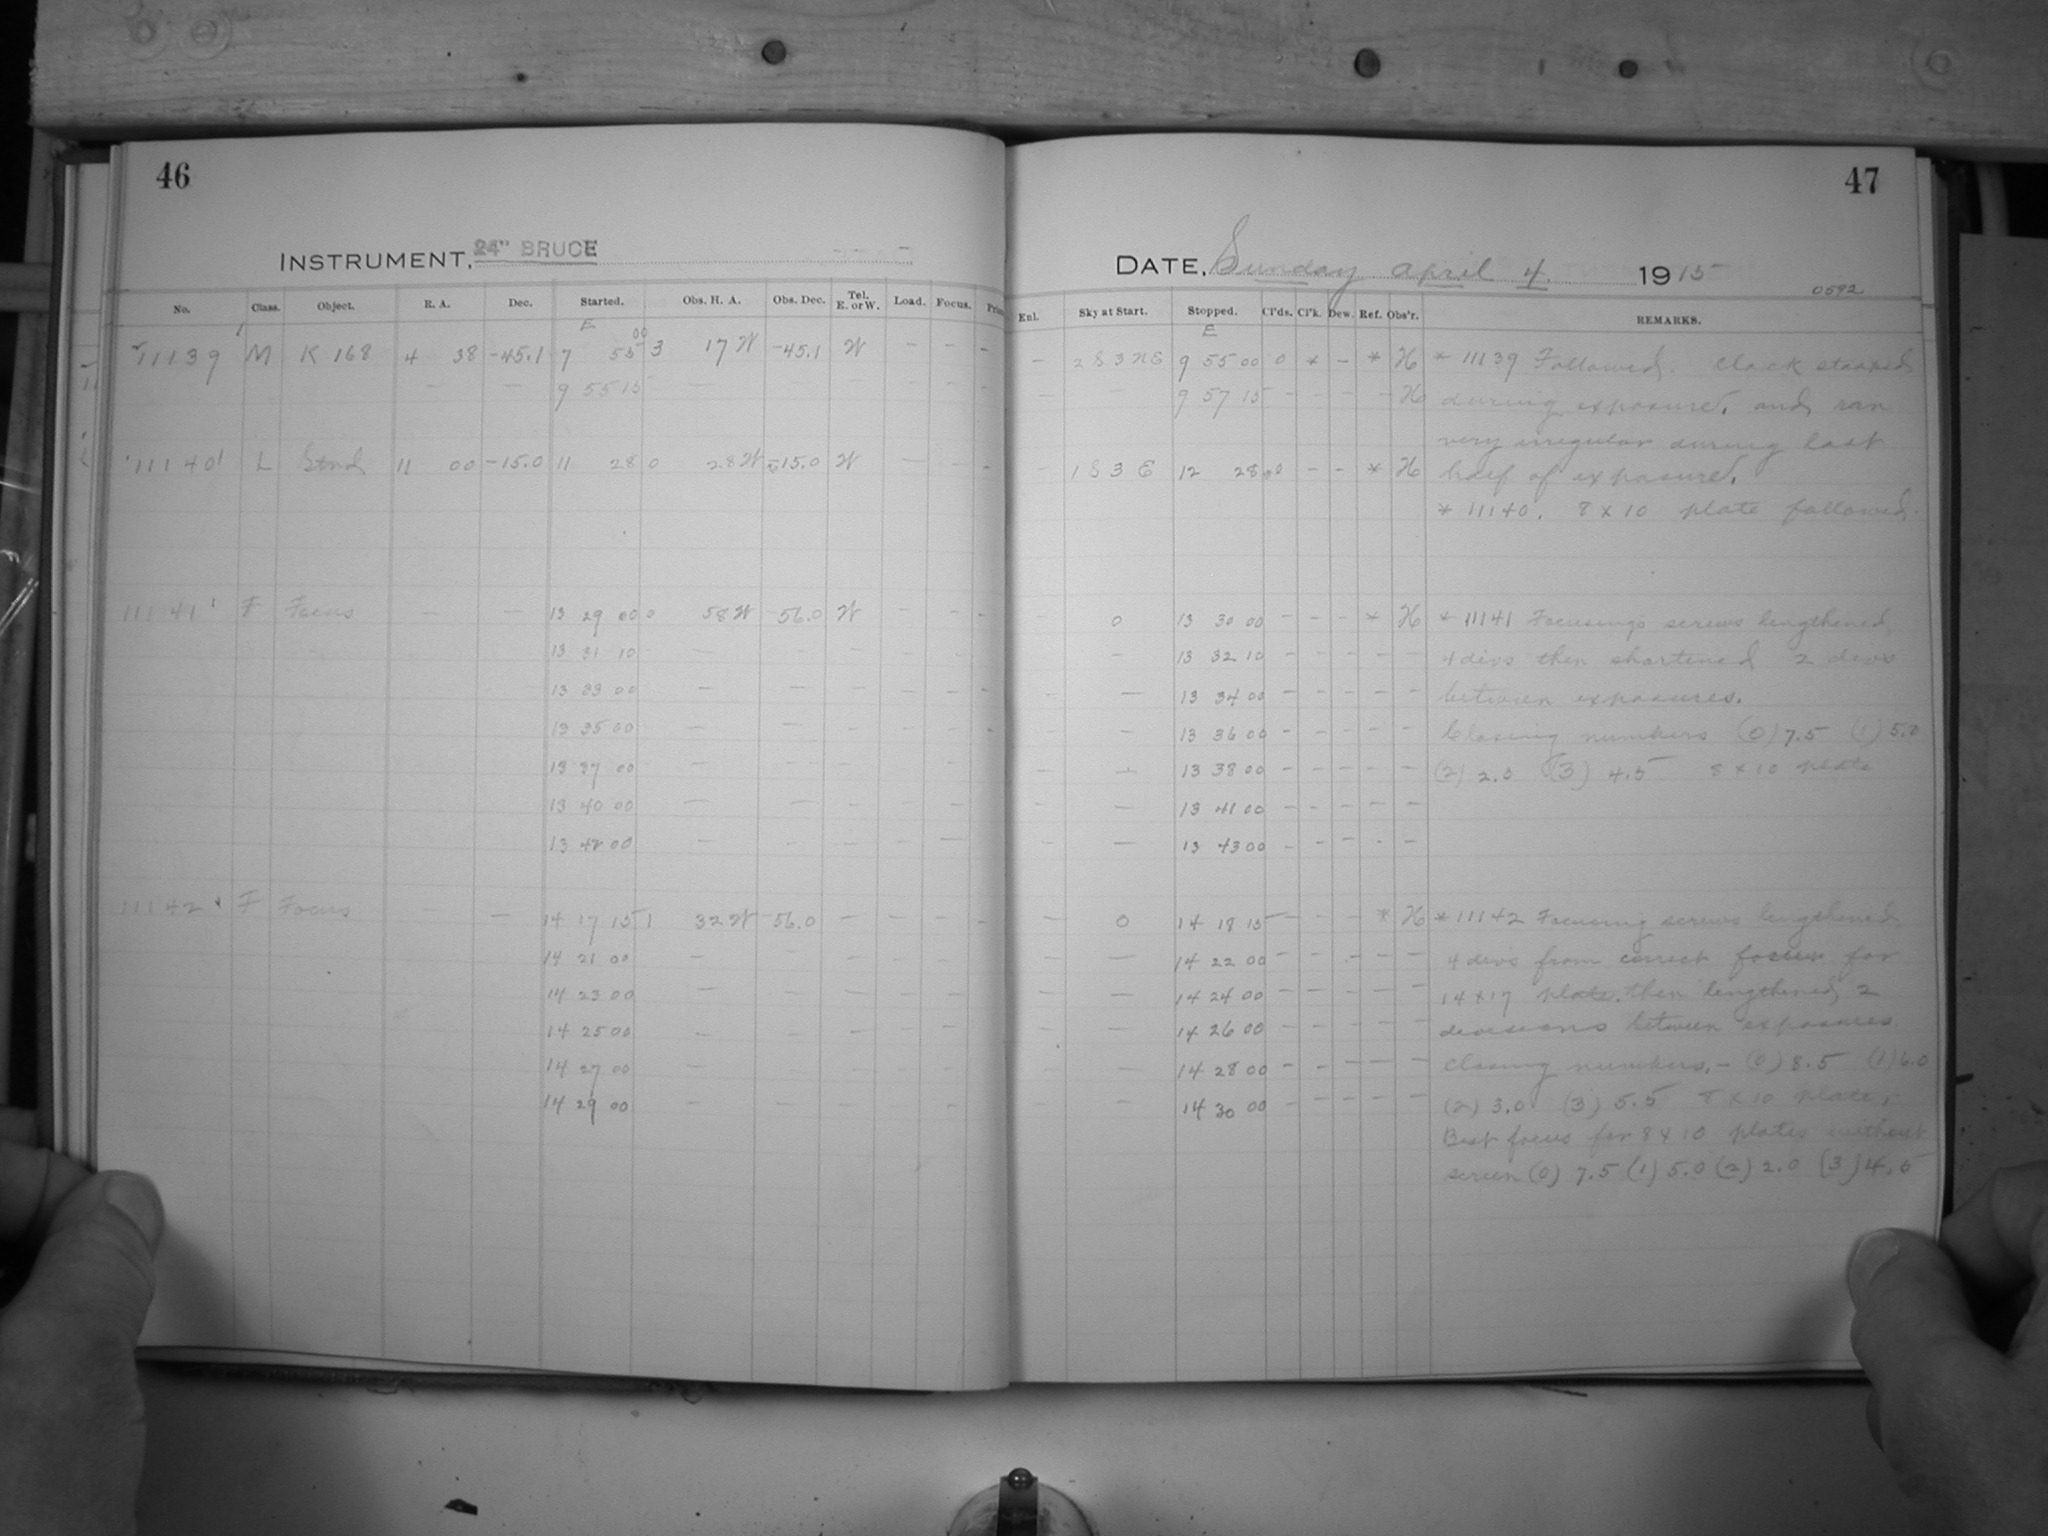 46
INSTRUMENT, 24" BRUCE
No. Class. Object. R. A. Dec. Started. Obs. H. A. Obs. Dec. Tel. E. or W. Load. Focus.
E
11139 M K 168 4 38 -45.1 7 55 00 3 17 W -45.1 W - - -
- - 9 55 15 - - - - - -
11140 L Stnd 11 00 -15.0 11 28 0 28 W -15.0 W - - -
11141 F Focus - - 13 29 00 0 58 W -56.0 W - - -
13 31 10 - - - - - -
13 33 00 - - - - - -
13 35 00 - - - - - -
13 37 00 - - - - - -
13 40 00 - - - - - -
13 42 00 - - - - - -
11142 F Focus - - 14 17 15 1 32 W -56.0 - - - -
14 21 00 - - - - - -
14 23 00 - - - - - -
14 25 00 - - - - - -
14 27 00 - - - - - -
14 29 00 - - - - - -
47
DATE, Sunday April 4. 1915
0592
Enl. Sky at Start. Stopped. Cl'ds. Cl'k. Dew. Ref. Obs'r. REMARKS.
E
- 2 S 3 N E 9 55 00 0 * - * H * 11139 Followed. Clock stopped
- - 9 57 15 - - - - H during exposure, and ran
very irregular during last
- 1 S 3 E 12 28 00 0 - - * H half of exposure.
* 11140. 8 x 10 plate followed.
- 0 13 30 00 - - - * H * 11141 Focusings screws lengthened
- - 13 32 10 - - - - - 4 divs then shortened 2 divs
- - 13 34 00 - - - - - between exposures.
- - 13 36 00 - - - - - Closing numbers (0) 7.5 (1) 5.0
- - 13 38 00 - - - - - (2) 2.0 (3) 4.5 8 x 10 plate
- - 13 41 00 - - - - -
- - 13 43 00 - - - - -
- 0 14 18 15 - - - * H * 11142 Focusing screws lengthened
- - 14 22 00 - - - - - 4 divs from correct focus for
- - 14 24 00 - - - - - 14 x 17 plate, then lengthened 2
- - 14 26 00 - - - - - divisions between exposures.
- - 14 28 00 - - - - - Closing numbers, - (0) 8.5 (1) 6.0
- - 14 30 00 - - - - - (2) 3.0 (3) 5.5 8 x 10 plate,
Best focus for 8 x 10 plates without
screen (0) 7.5 (1) 5.0 (2) 2.0 (3) 4.5